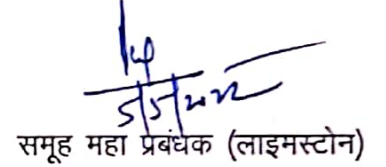 समूह महा प्रबंधक (लाइमस्टोन)